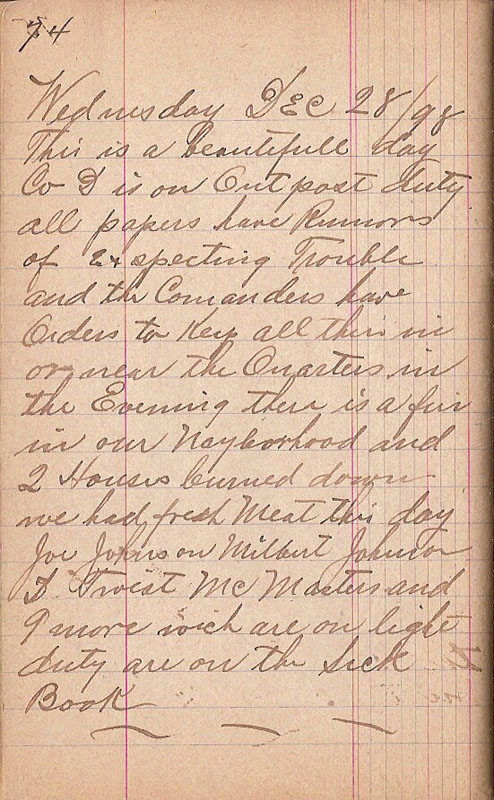 74
Wednesday Dec 28/98
This is a beautifull day
Co D is on Outpost duty
all papers have Rumors
of Exspecting Trouble
and the Comanders have
Orders to Keep all their in
or near the Quarters in
the Evening ther is a fier
in our Neyborhood and
2 Houses burned down
we had fresh Meat this day
Joe Johnson Milbert Johnson
Twist McMasters and
9 more wich are on light
duty are on the Sick
Book